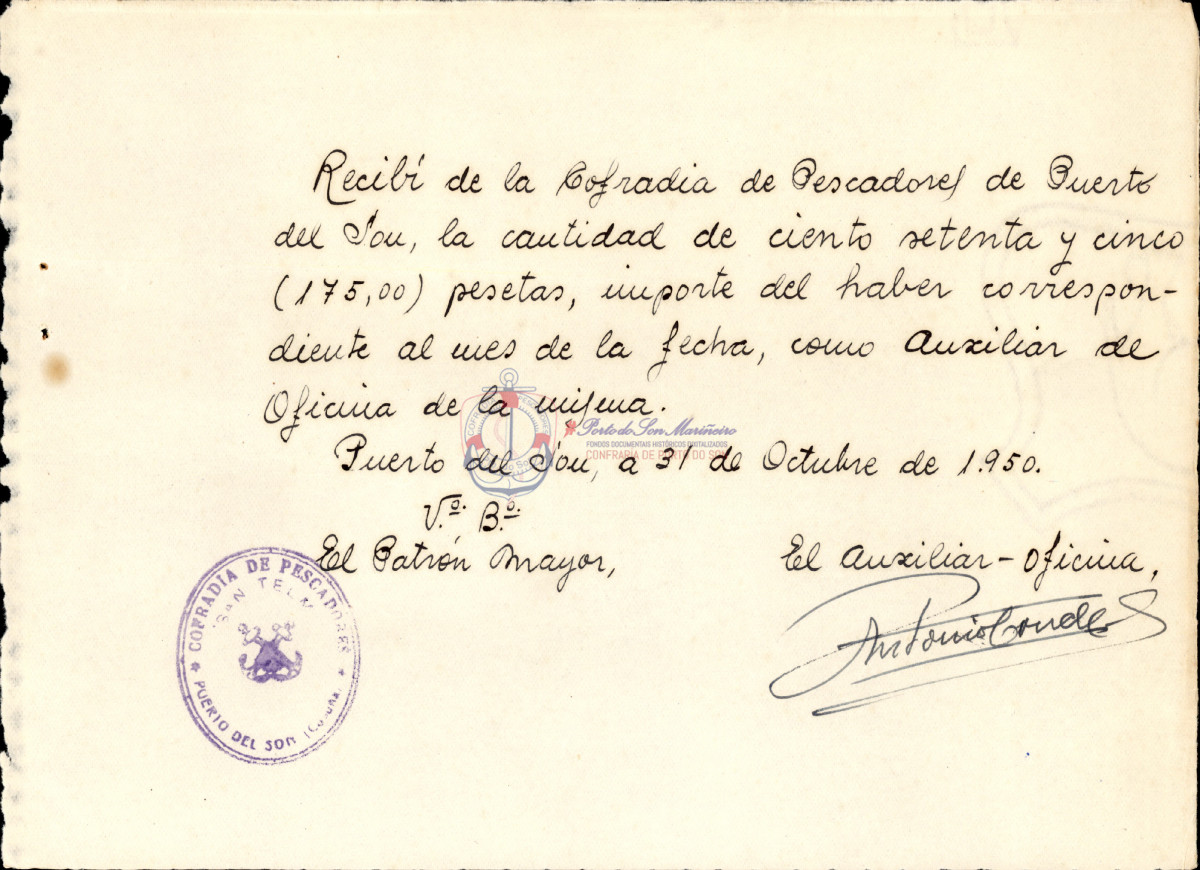 Recibí de la Cofradia de Pescadores de Puerto
del Son, la cantidad de ciento setenta y cinco
(175,00) pesetas, importe del haber correspon-
diente al mes de la fecha, como Auxiliar de
Oficina de la misma.
Porto do Son Mariñeiro
FONDOS DOCUMENTAIS HISTÓRICOS DIXITALIZADOS
CONFRARÍA DE PORTO DO SON
Puerto del Son, a 31 de Octubre de 1.950.
V.º B.º
El Patrón Mayor,
El Auxiliar-Oficina,
Antonio Conde
* COFRADIA DE PESCADORES *
"SAN TELMO"
PUERTO DEL SON (CORUÑA)